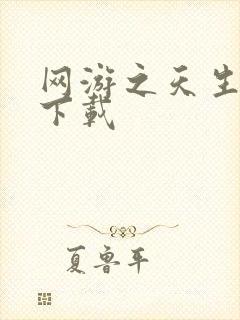 网游之天生
下载
夏鲁平